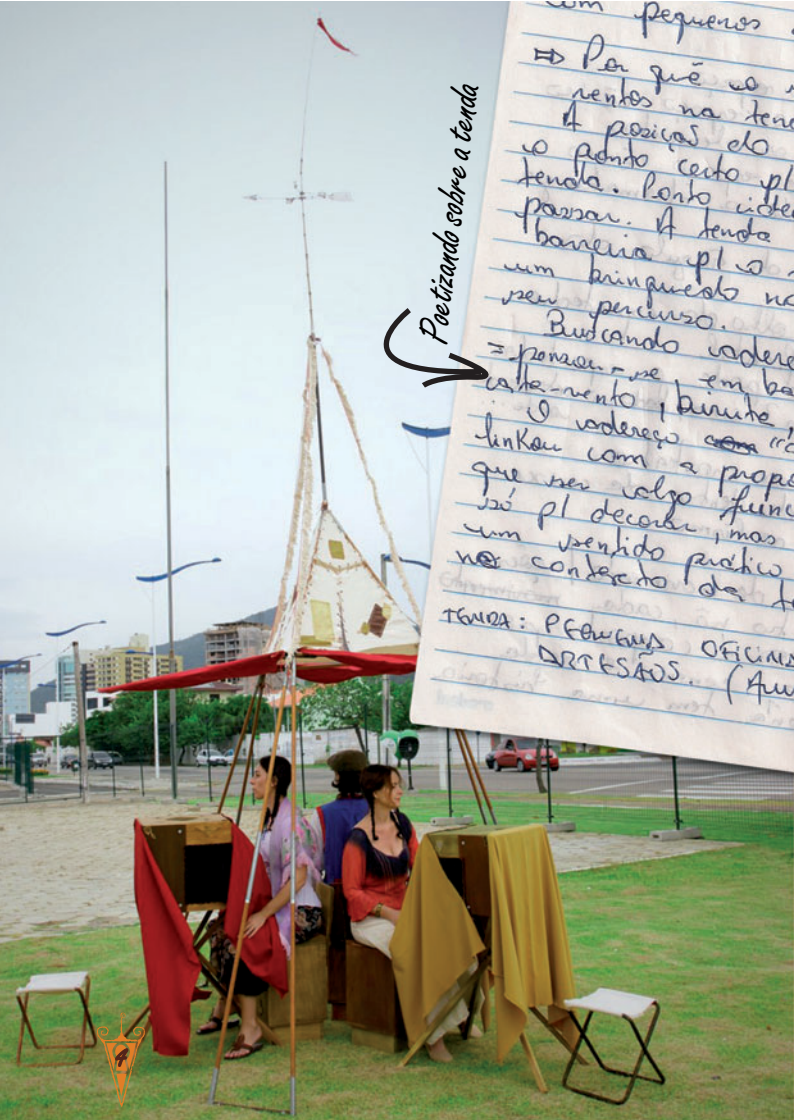 Poetizando sobre a tenda
com pequenos
⇨ Por quê o
ventos na tend
A posição do
o ponto certo p/
tenda. Ponto ide
passar. A tenda
barreira p/ o
um brinquedo no
seu percurso.
Buscando adere
= pensou-se em ba
cata-vento, biruta,
O adereço
linkou com a propo
que ser algo func
só p/ decorar, mas
um sentido prático
no contexto da te
TENDA: PEQUENA OFICINA
ARTESÃOS.
4